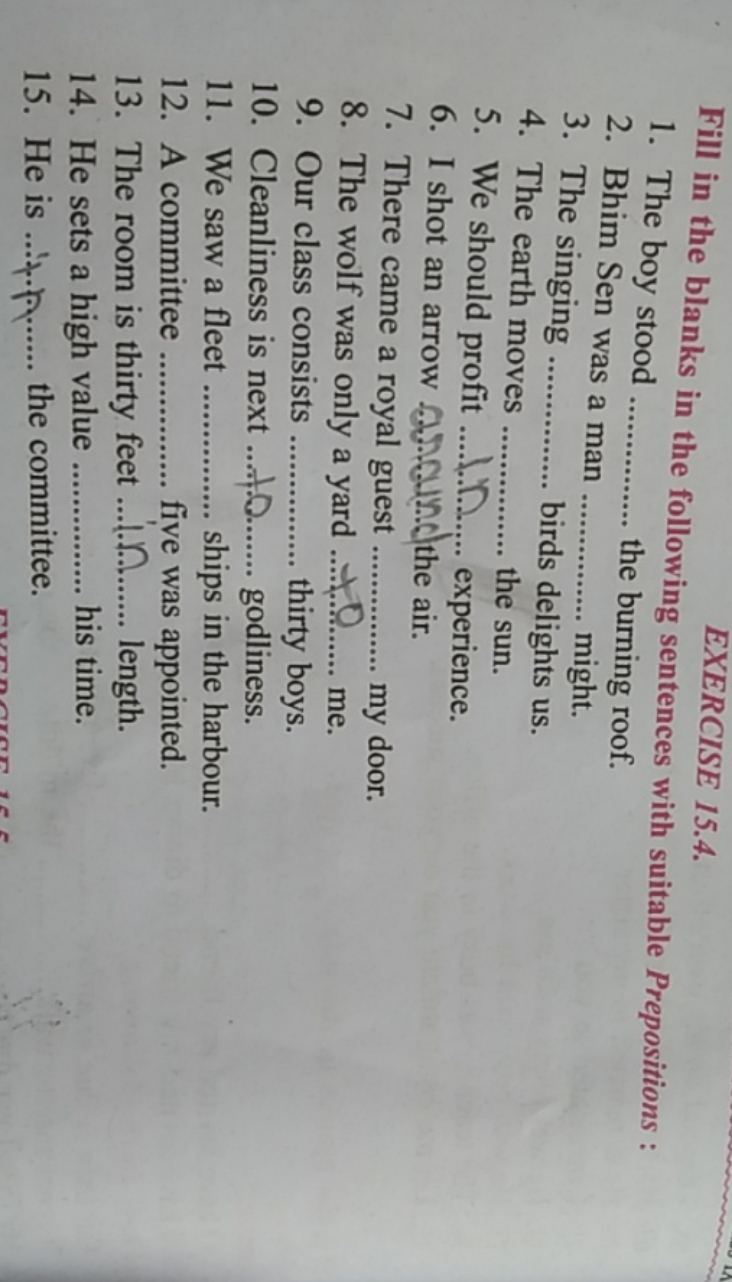 EXERCISE 15.4.
Fill in the blanks in the following sentences with suitable Prepositions :
1. The boy stood ............... the burning roof.
2. Bhim Sen was a man .............. might.
3. The singing ............... birds delights us.
4. The earth moves ............... the sun.
5. We should profit ....in.... experience.
6. I shot an arrow around the air.
7. There came a royal guest .............. my door.
8. The wolf was only a yard ....to....... me.
9. Our class consists ............... thirty boys.
10. Cleanliness is next ...to...... godliness.
11. We saw a fleet ............... ships in the harbour.
12. A committee ............... five was appointed.
13. The room is thirty feet ...in...... length.
14. He sets a high value ............... his time.
15. He is ...in...... the committee.